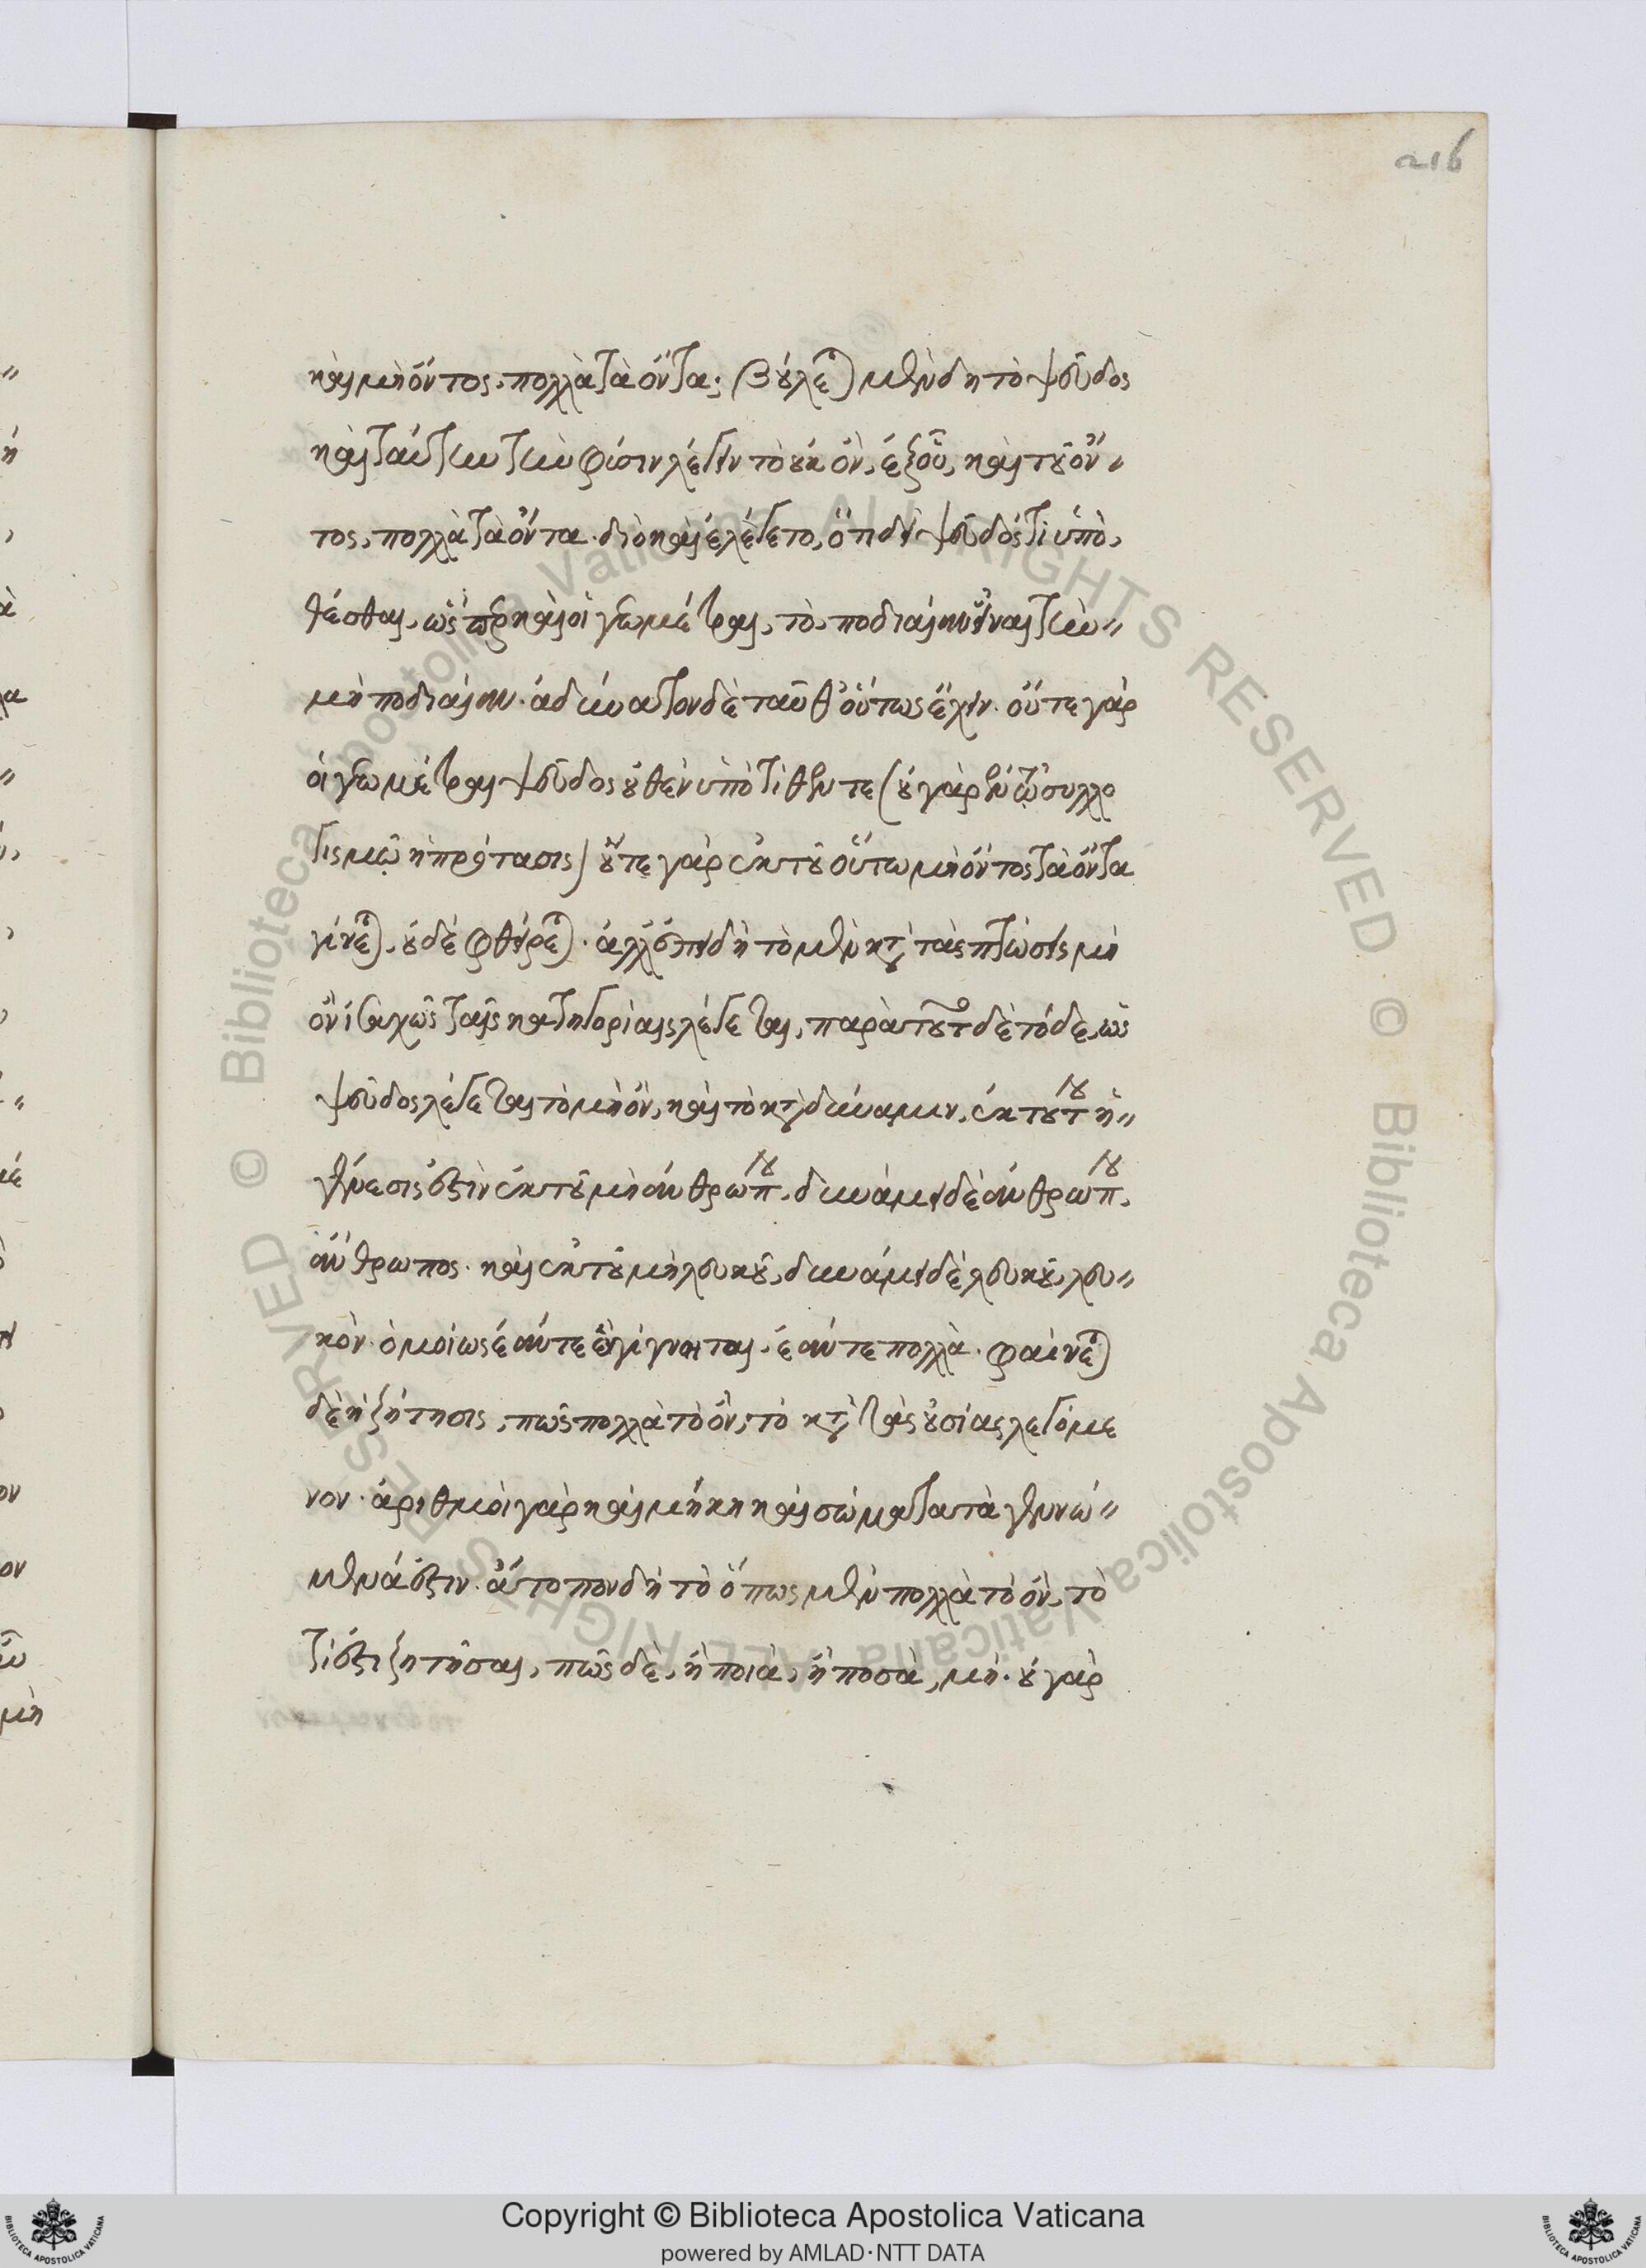 216
καὶ μὴ ὄντος, πολλὰ τὰ ὄντα· βούλεται μὲν δὴ τὸ ψεῦδος
καὶ ταύτην τὴν φύσιν λέγειν τὸ οὐκ ὄν, ἐξ οὗ, καὶ τοῦ ὄν-
τος, πολλὰ τὰ ὄντα. διὸ καὶ ἐλέγετο, ὅτι δεῖ ψεῦδός τι ὑπο-
θέσθαι, ὥσπερ καὶ οἱ γεωμέτραι, τὸ, ποδιαίαν εἶναι τὴν
μὴ ποδιαίαν. ἀδύνατον δὲ ταῦθ' οὕτως ἔχειν. οὔτε γὰρ
οἱ γεωμέτραι ψεῦδος οὐθὲν ὑποτίθενται (οὐ γὰρ ἐν τῷ συλλο
γισμῷ ἡ πρότασις) οὔτε γὰρ ἐκ τοῦ οὕτω μὴ ὄντος τὰ ὄντα
γίνεται, οὐδὲ φθείρεται. ἀλλ' ἐπειδὴ τὸ μὲν κατὰ τὰς πτώσεις μὴ
ὂν ἰσαχῶς ταῖς κατηγορίαις λέγεται, παρὰ τοῦτο δὲ τόδε, ὡς
ψεῦδος λέγεται τὸ μὴ ὄν, καὶ τὸ κατὰ δύναμιν, ἐκ τούτου ἡ
γένεσις ἐστὶν ἐκ τοῦ μὴ ἀνθρώπου, δυνάμει δὲ ἀνθρώπου,
ἄνθρωπος. καὶ ἐκ τοῦ μὴ λευκοῦ, δυνάμει δὲ λευκοῦ, λευ-
κόν. ὁμοίως ἐάν τε ἓν γίγνηται, ἐάν τε πολλά. φαίνεται
δὲ ἡ ζήτησις, πῶς πολλὰ τὸ ὄν, τὸ κατὰ τὰς οὐσίας λεγόμε
νον. ἀριθμοὶ γὰρ καὶ μήκη καὶ σώματα τὰ γεννώ-
μενά ἐστιν. ἄτοπον δὴ τὸ ὅπως μὲν πολλὰ τὸ ὄν, τὸ
τί ἐστι ζητῆσαι, πῶς δὲ, ἢ ποιὰ, ἢ ποσὰ, μή. οὐ γὰρ
Copyright © Biblioteca Apostolica Vaticana
powered by AMLAD·NTT DATA